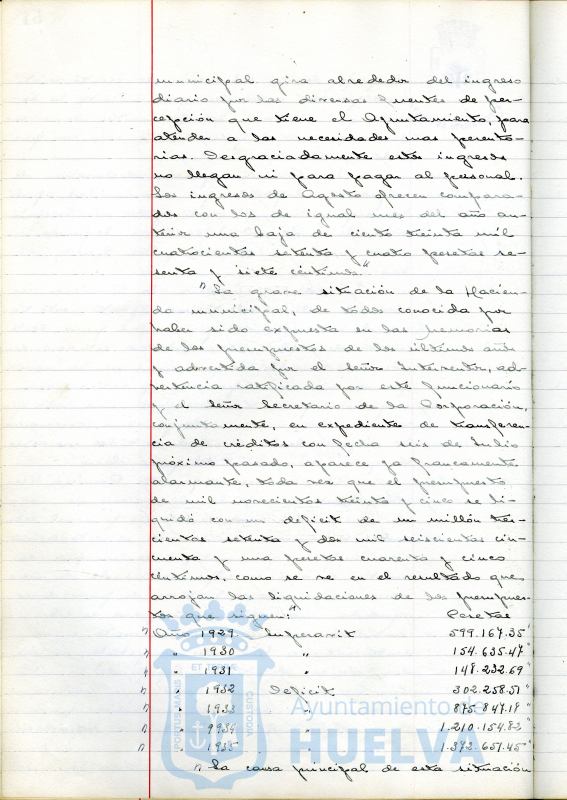 municipal gira alrededor del ingreso
diario por las diversas fuentes de per-
cepción que tiene el Ayuntamiento, para
atender a las necesidades mas perento-
rias. Desgraciadamente estos ingresos
no llegan ni para pagar al personal.
Los ingresos de Agosto ofrecen compara-
dos con los de igual mes del año an-
terior una baja de ciento treinta mil
cuatrocientas setenta y cuatro pesetas se-
senta y siete céntimos."
" La grave situación de la Hacien-
da municipal, de todos conocida por
haber sido expuesta en las memorias
de los presupuestos de los últimos años
y advertida por el señor Interventor, ad-
vertencia ratificada por este funcionario
y el señor Secretario de la Corporación,
conjuntamente, en expedientes de transferen-
cia de créditos con fecha seis de Julio
próximo pasado, aparece ya francamente
alarmante, toda vez que el presupuesto
de mil novecientos treinta y cinco se li-
quidó con un deficit de un millón tres-
cientas setenta y dos mil seiscientas cin-
cuenta y una pesetas cuarenta y cinco
céntimos, como se ve en el resultado que
arrojan las liquidaciones de los presupues-
tos que siguen:" Pesetas
" Año 1929 Superavit 599.167.35"
" " 1930 " 154.635.47"
" 1931 " 148.232.69"
" " 1932 Deficit 302.258.51"
" " 1933 " 875.847.18"
" " 9934 " 1.210.154.82"
" " 1935 " 1.372.651.45"
" La causa principal de esta situación
Ayuntamiento de
HUELVA
PORTUS MARIS
ET TERRAE
CUSTODIA